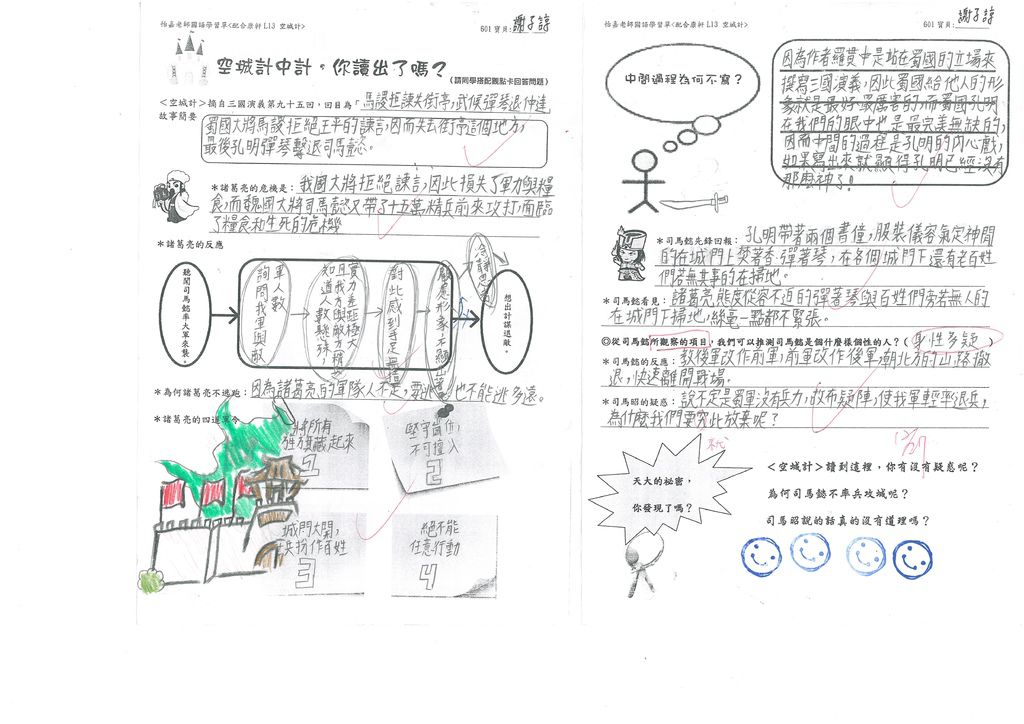 怡嘉老師國語學習單<配合康軒 L13 空城計>
601 寶貝:謝子諄
空城計中計,你讀出了嗎?
(請同學搭配觀點卡回答問題)
<空城計>摘自三國演義第九十五回,回目為「馬謖拒諫失街亭,武侯彈琴退仲達
故事簡要
蜀國大將馬謖拒絕王平的諫言,因而失去街亭這個地方,
最後孔明彈琴擊退司馬懿。
*諸葛亮的危機是:我國大將拒絕諫言,因此損失了軍力與糧
食,而魏國大將司馬懿又帶了十五萬精兵前來攻打,面臨
了糧食和生死的危機
*諸葛亮的反應
聽聞司馬懿率大軍來襲。
詢問我軍與敵
軍人數
知道人數懸殊
且我方與敵方精
實力差距極大
對此感到手足無措
冷靜
想出計謀退敵。
*為何諸葛亮不逃跑:因為諸葛亮的軍隊人不足,要逃也不能逃多遠。
*諸葛亮的四道軍令
將所有
旌旗藏起來
1
堅守崗位,
不可擅入
2
城門大開,
士兵扮作百姓
3
絕不能
任意行動
4
怡嘉老師國語學習單<配合康軒 L13 空城計>
601 寶貝:謝子諄
中間過程為何不寫?
因為作者羅貫中是站在蜀國的立場來
撰寫三國演義,因此蜀國給他人的形
象就是最好最厲害的,而蜀國孔明
在我們的眼中也是最完美無缺的,
因而中間的過程是孔明的內心戲,
如果寫出來就顯得孔明已經沒有
那麼神了!
*司馬懿先鋒回報:孔明帶著兩個書僮,服裝儀容氣定神閒
的在城門上焚著香彈著琴,在各個城門下還有老百姓
們若無其事的在掃地。
*司馬懿看見:諸葛亮態度從容不迫的彈著琴與百姓們旁若無人的
在城門下掃地,絲毫一點都不緊張。
◎從司馬懿所觀察的項目,我們可以推測司馬懿是個什麼樣個性的人?(身性多疑
*司馬懿的反應:教後軍改作前軍,前軍改作後軍,朝北方的山路撤
退,快速離開戰場。
*司馬昭的疑惑:說不定是蜀軍沒有兵力,故布疑陣,使我軍輕率退兵,
為什麼我們要就此放棄呢?
12/27
天大的祕密,
你發現了嗎?
<空城計>讀到這裡,你有沒有疑惑呢?
為何司馬懿不率兵攻城呢?
司馬昭說的話真的沒有道理嗎?